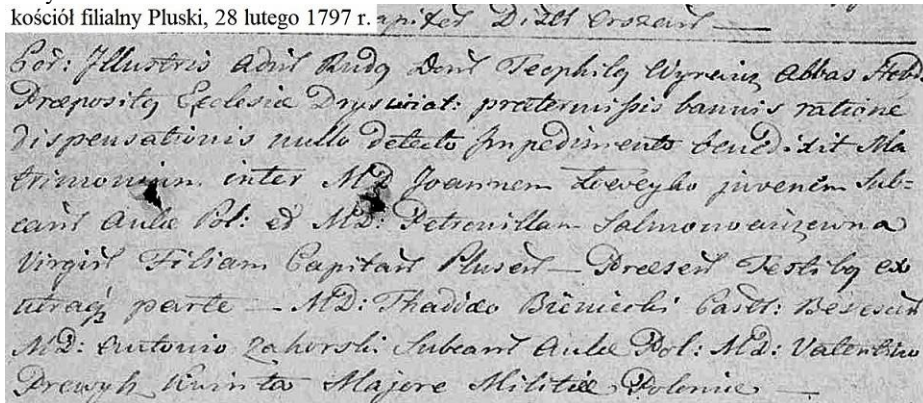 kościół filialny Pluski, 28 lutego 1797 r.
Capitet Distt Orszan
Cor: Illustris Adm Rndg Domi Teophilg Wyrwicz Abbas
Præpositg Ecclesiæ Dryswiat: prætermissis bannis ratione
dispensationis nullo detecto Impedimento benedixit Ma
trimonium inter MD Joannem juvenem Sub=
Aulæ Pol: et MD: Petronillam Salmonowiczewna
Virgin Filiam Capitan Plusen — Præsen Testibg ex
utraqz parte — MD: Thadæo Bieniecki
MD: Antonio Zahorski Aulæ Pol: MD: Valentino
Drewyk Kwinta Majore Militiæ Poloniæ —